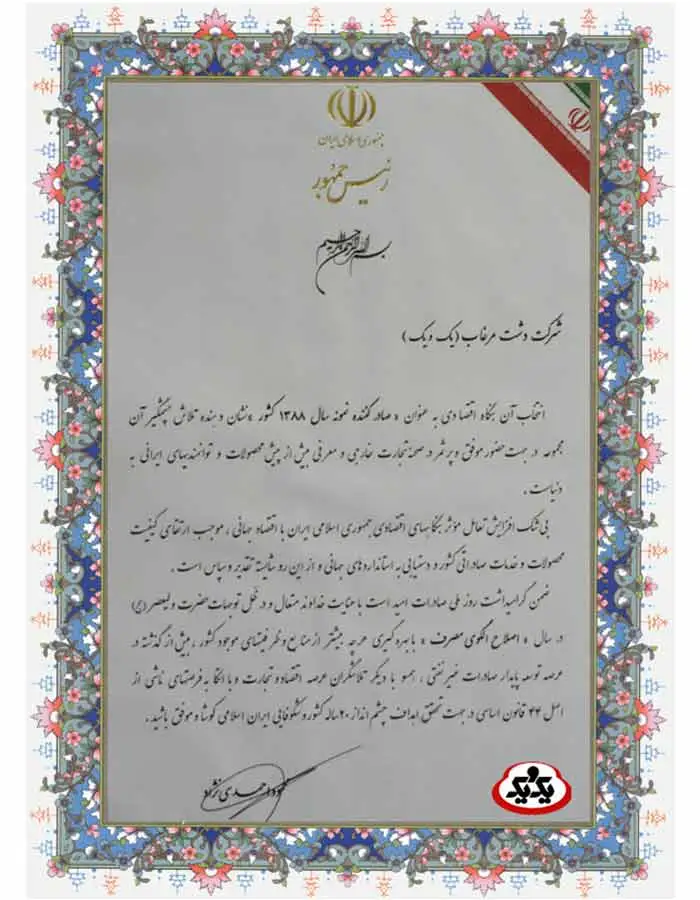 جمهوری اسلامی ایران
رئیس جمهور
بسم الله الرحمن الرحیم
شرکت دشت مرغاب (یک و یک)
انتخاب آن بنگاه اقتصادی به عنوان « صادر کننده نمونه سال ۱۳۸۸ کشور » نشان دهنده تلاش پیگیر آن
مجموعه در جهت حضور موفق و پرثمر در صحنه تجارت خارجی و معرفی بیش از پیش محصولات و توانمندیهای ایرانی به
دنیاست .
بی شک افزایش تعامل مؤثر بنگاههای اقتصادی جمهوری اسلامی ایران با اقتصاد جهانی ، موجب ارتقای کیفیت
محصولات و خدمات صادراتی کشور و دستیابی به استانداردهای جهانی و از این رو شایسته تقدیر و سپاس است .
ضمن گرامیداشت روز ملی صادرات امید است با عنایت خداوند متعال و در ظل توجهات حضرت ولیعصر (عج)
در سال « اصلاح الگوی مصرف » با بهره گیری هرچه بیشتر از منابع و ظرفیتهای موجود کشور ، بیش از گذشته در
عرصه توسعه پایدار صادرات غیر نفتی ، همسو با دیگر تلاشگران عرصه اقتصاد و تجارت و با اتکا به فرصتهای ناشی از
اصل ۴۴ قانون اساسی در جهت تحقق اهداف چشم انداز ۲۰ ساله کشور و شکوفایی ایران اسلامی کوشا و موفق باشید .
محمود احمدی نژاد
یک و یک